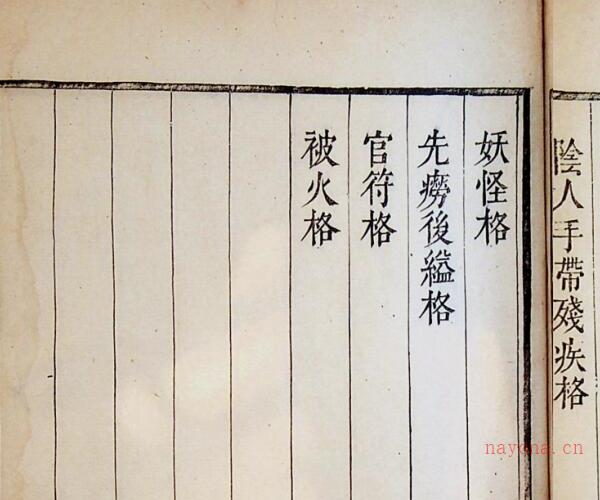 陰人手帶殘疾格
妖怪格
先癆後縊格
官符格
被火格
nayona.cn